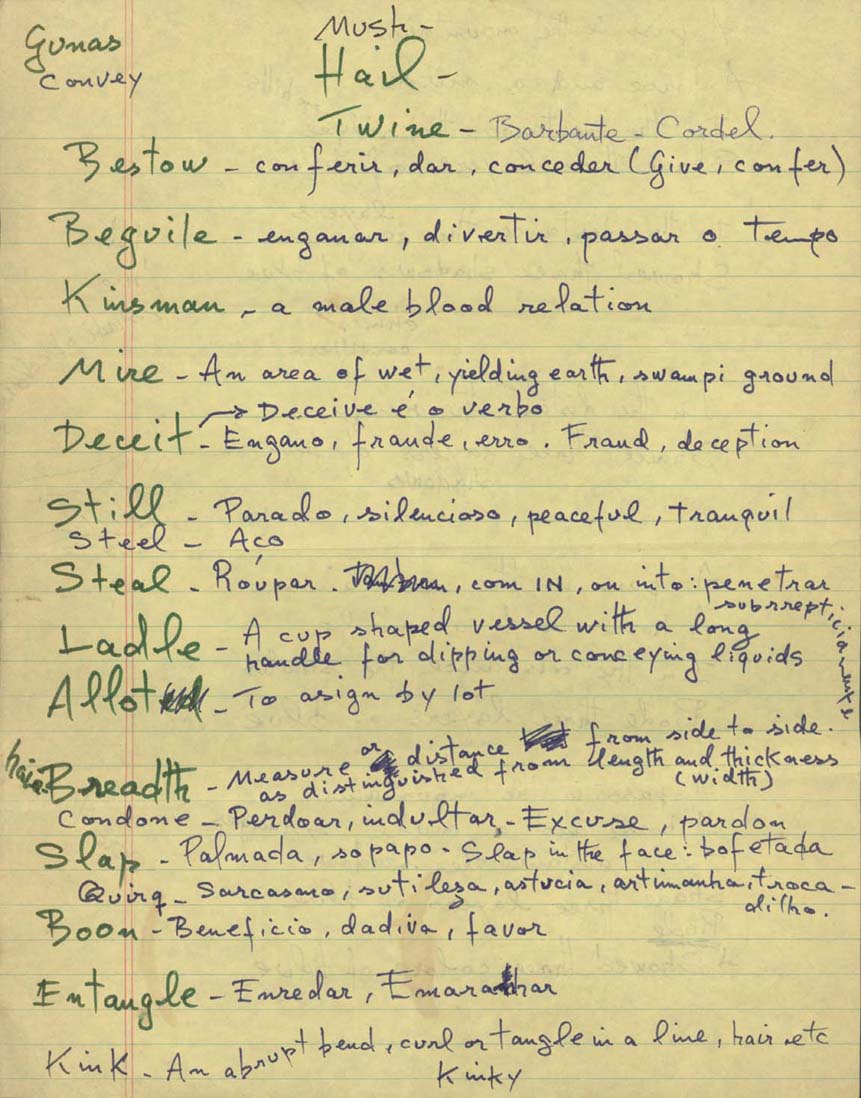 Mush -
Gunas
Hail -
convey
Twine - Barbante - Cordel.
Bestow - conferir, dar, conceder (Give, confer)
Beguile - enganar, divertir, passar o tempo
Kinsman - a male blood relation
Mire - An area of wet, yielding earth, swampi ground
→ Deceive é o verbo
Deceit - Engano, fraude, erro. Fraud, deception
Still - Parado, silencioso, peaceful, tranquil
Steel - Aço
Steal - Roupar. , com IN, on into: penetrar
subrrepticiamente
Ladle - A cup shaped vessel with a long
handle for dipping or conceying liquids
Allot - To asign by lot
hair Breadth - Measure or distance from side to side.
as distinguished from length and thickness
(width)
Condone - Perdoar, indultar, - Excuse, pardon
Slap - Palmada, sopapo - Slap in the face: bofetada
Quirq - Sarcasmo, sutileza, astucia, artimanha, troca-
dilho.
Boon - Beneficio, dadiva, favor
Entangle - Enredar, Emaranhar
Kink - An abrupt bend, curl or tangle in a line, hair etc
Kinky